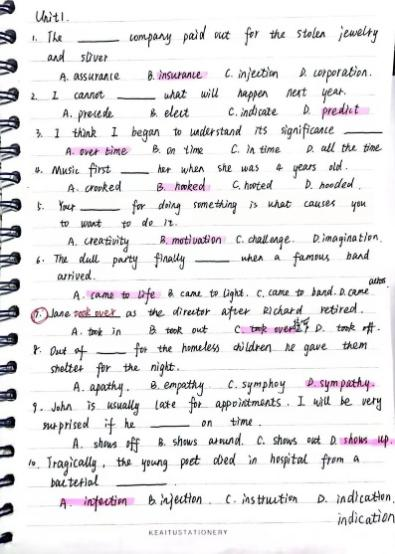 Unit1.
1. The ______ company paid out for the stolen jewelry
and silver
A. assurance B. insurance C. injection D. corporation.
2. I cannot ______ what will happen next year.
A. precede B. elect C. indicate D. predict
3. I think I began to understand its significance ______
A. over time B. on time C. in time D. all the time
4. Music first ______ her when she was 4 years old.
A. crooked B. hooked C. hooted D. hooded.
5. Your ______ for doing something is what causes you
to want to do it.
A. creativity B. motivation C. challenge. D. imagination.
6. The dull party finally ______ when a famous band
arrived.
A. came to life B. came to light. C. came to hand. D. came
7. Jane took over as the director after Richard retired.
A. took in B. took out C. took over D. took off.
8. Out of ______ for the homeless children he gave them
shelter for the night.
A. apathy. B. empathy. C. symphoy D. sympathy.
9. John is usually late for appointments. I will be very
surprised if he ______ on time.
A. shows off B. shows around. C. shows out D. shows up.
10. Tragically, the young poet died in hospital from a
bacterial ______.
A. infection B. injection. C. instruction D. indication.
indication
KEAITUSTATIONERY